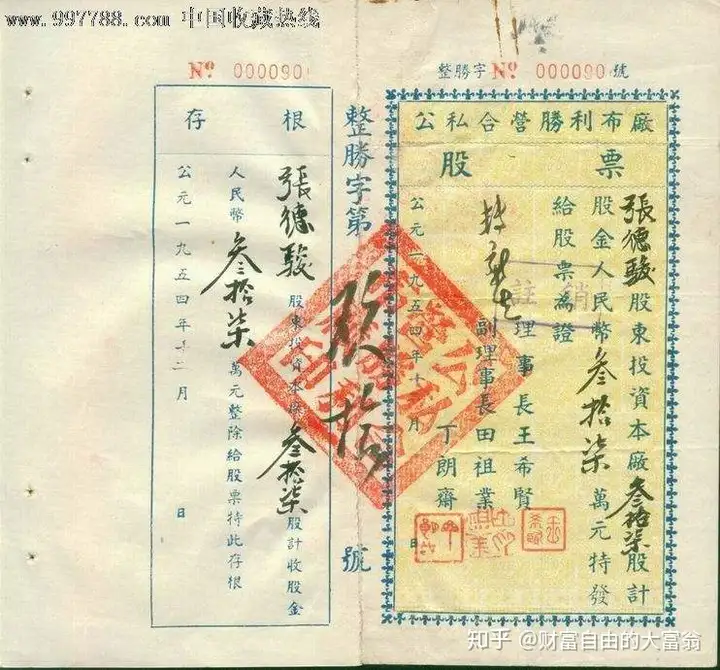 www.997788.com 中国收藏热线
整勝字№ 000090號
公私合營勝利布廠
股票
張德駿股東投資本廠叁拾柒股計
股金人民幣叁拾柒萬元特發
給股票為證
註銷
理事長王希賢
副理事長田祖業
丁朗齋
公元一九五四年十月 日
整勝字第玖拾號
№ 000090
存根
張德駿股東投資本廠叁拾柒股計收股金
人民幣叁拾柒萬元整除給股票特此存根
公元一九五四年十二月 日
知乎 @财富自由的大富翁